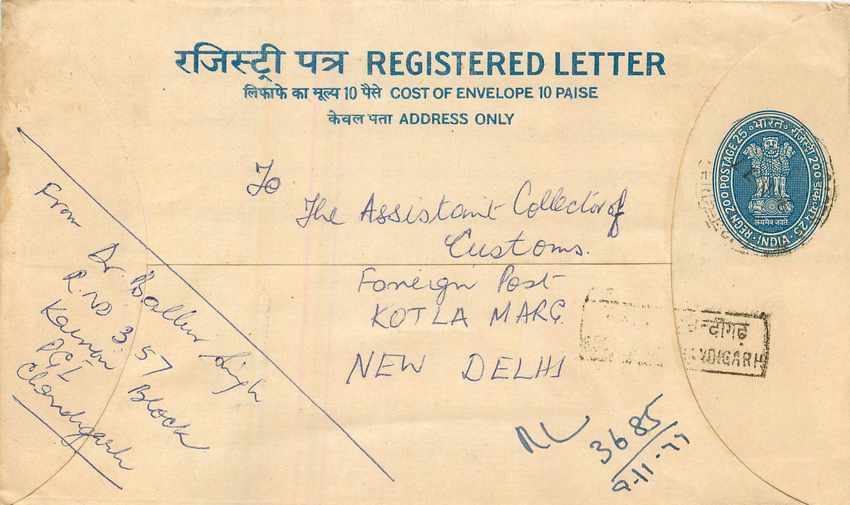 रजिस्ट्री पत्र REGISTERED LETTER
लिफाफे का मूल्य 10 पैसे COST OF ENVELOPE 10 PAISE
केवल पता ADDRESS ONLY
भारत रजिस्ट्री 200 डाक 25
REGN 200 POSTAGE 25
INDIA
सत्यमेव जयते
To
The Assistant Collector of
Customs.
Foreign Post
KOTLA MARG
NEW DELHI
From Dr. Singh
R. No 357
Block
PGI
Chandigarh
चन्दीगढ़
NDIGARH
RL
3685
9-11-77